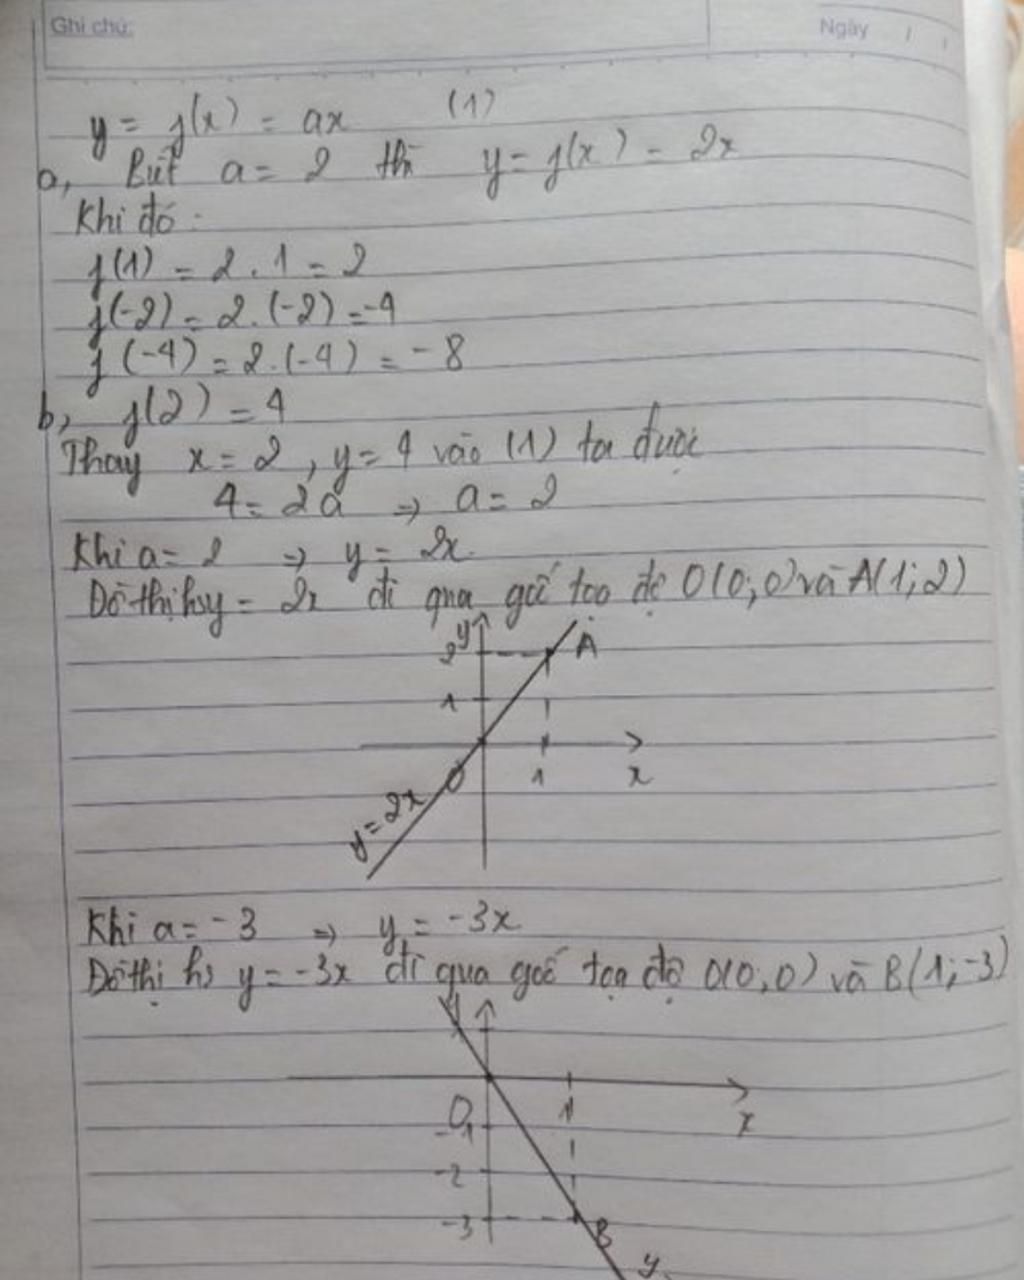 Ghi chú:
Ngày / /
y = f(x) = ax (1)
a, Biết a = 2 thì y = f(x) = 2x
Khi đó:
f(1) = 2 . 1 = 2
f(-2) = 2. (-2) = -4
f(-4) = 2. (-4) = -8
b, f(2) = 4
Thay x = 2, y = 4 vào (1) ta được
4 = 2a => a = 2
Khi a = 2 => y = 2x.
Đồ thị hs y = 2x đi qua gốc tọa độ O(0; 0) và A(1; 2)
y
2 A
1
1 x
O
y = 2x
Khi a = -3 => y = -3x
Đồ thị hs y = -3x đi qua gốc tọa độ O(0, 0) và B(1; -3)
y
O 1 x
-1
-2
-3 B
y